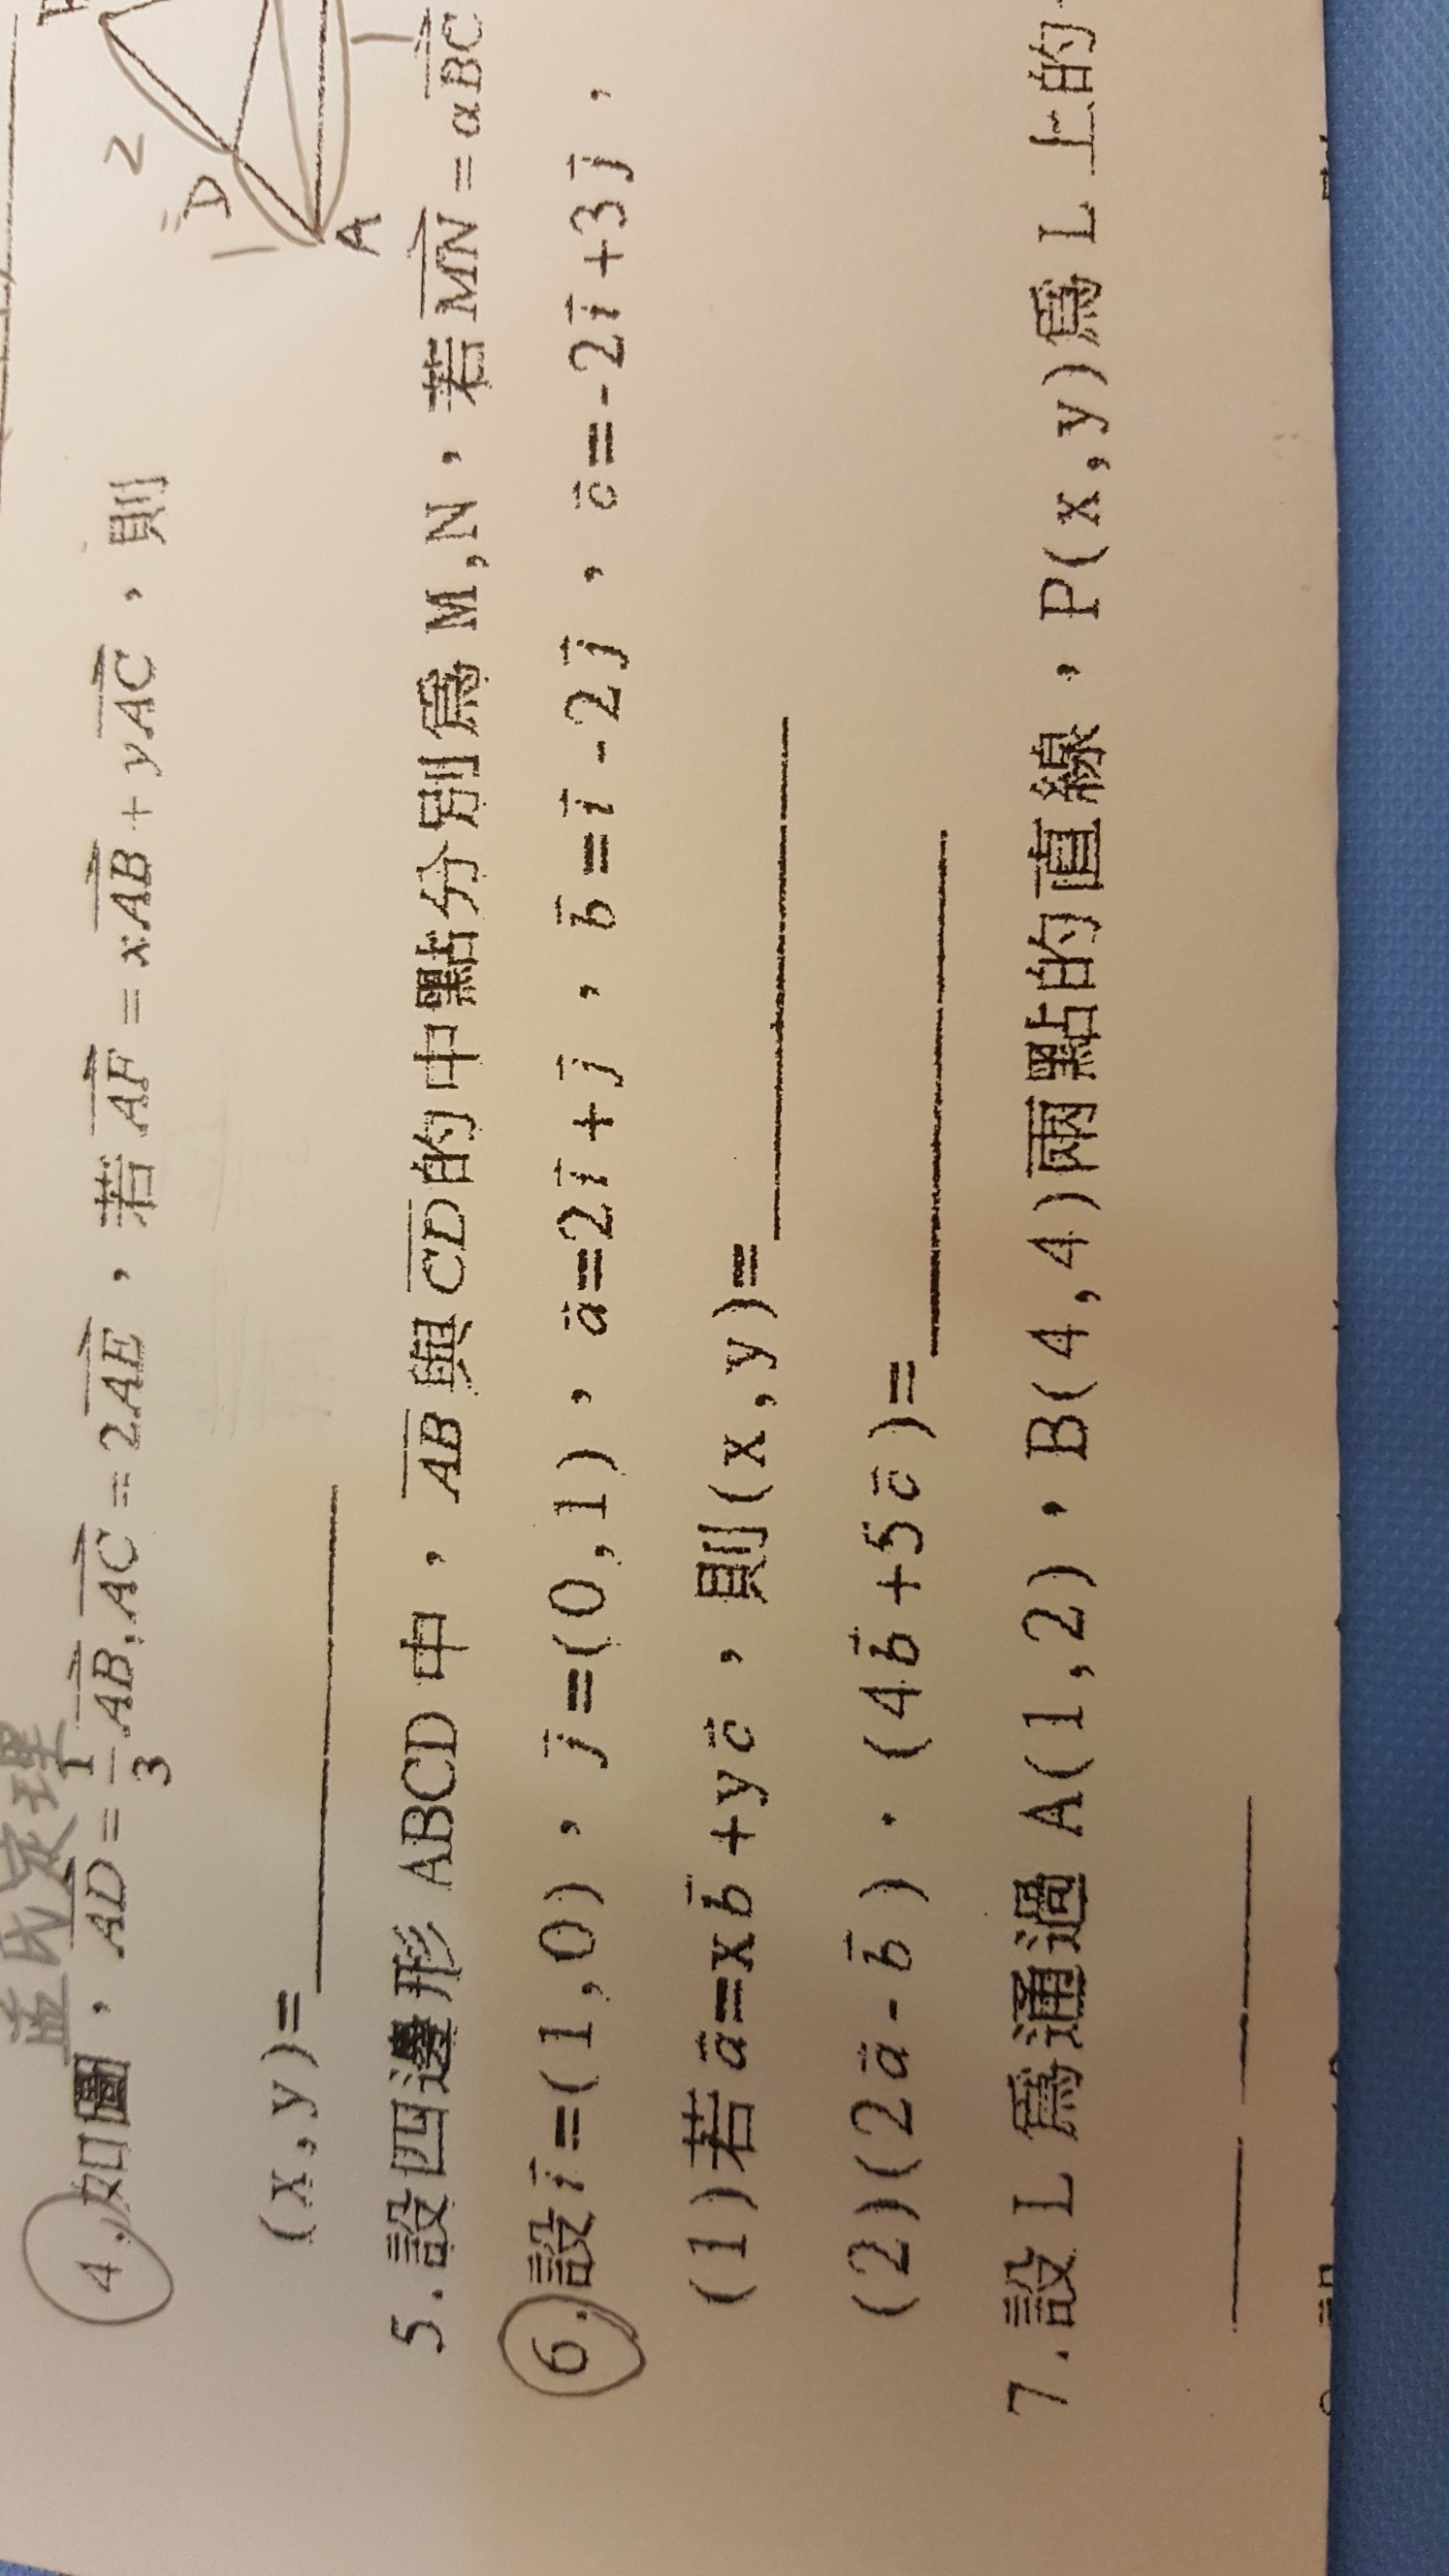 孟氏定理
4. 如圖，AD = 1/3 AB, AC = 2AE，若 AF = xAB + yAC，則
(x,y)=
2
D
1
A
1
5.設四邊形 ABCD 中，AB與CD的中點分別為 M,N，若MN = αBC
6.設i=(1,0)，j=(0,1)，a=2i+j，b=i-2j，c=-2i+3j，
(1)若a=xb+yc，則(x,y)=
(2)(2a-b)·(4b+5c)=
7.設 L 為通過 A(1,2)，B(4,4)兩點的直線，P(x,y)為 L 上的